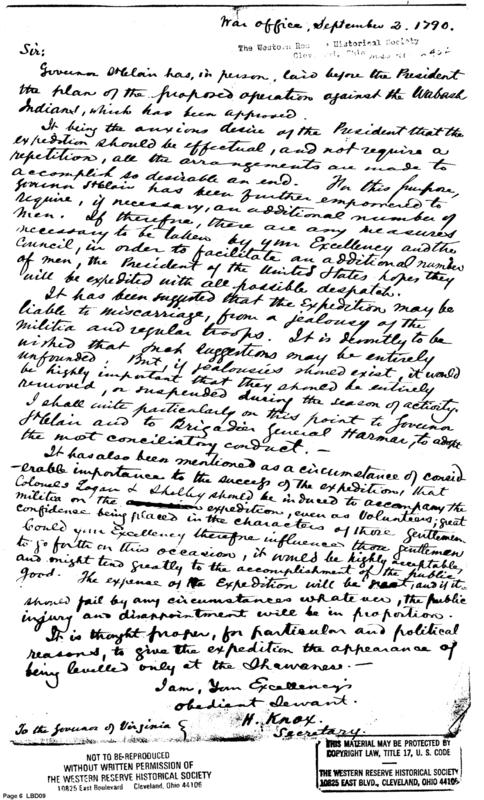 War Office, September 2. 1790.
The Western Res e Historical Society
Cleveland, Ohio
Sir;
Governor St Clair has, in person, laid before the President
the plan of the proposed operation against the Wabash
Indians, which has been approved.
It being the anxious desire of the President that the
expedition should be effectual, and not require a
repetition, all the arrangements are made to
accomplish so desirable an end. For this purpose,
Governor St Clair has been further empowered to
require, if necessary, an additional number of
men. If therefore, there are any measures
necessary to be taken by your Excellency and the
Council, in order to facilitate an additional number
of men, the President of the United States hopes they
will be expedited with all possible despatch.
It has been suggested that the Expedition may be
liable to miscarriage, from a jealousy of the
Militia and regular troops. It is devoutly to be
wished that such suggestions may be entirely
unfounded. But, if jealousies should exist, it would
be highly important that they should be entirely
removed, or suspended during the season of activity.
I shall write particularly on this point to Governor
St Clair and to Brigadier General Harmar, to adopt
the most conciliatory conduct. —
It has also been mentioned as a circumstance of consid
-erable importance to the success of the expedition, that
Colonels Logan & Shelby should be induced to accompany the
militia on the expedition, even as Volunteers; great
confidence being placed in the characters of those Gentlemen.
Could your Excellency therefore influence those gentlemen
to go forth on this occasion, it would be highly acceptable,
and might tend greatly to the accomplishment of the public
good. The expense of the Expedition will be great; and if it
should fail by any circumstances whatever, the public
injury and disappointment will be in proportion.
It is thought proper, for particular and political
reasons, to give the expedition the appearance of
being levelled only at the Shawanese. —
I am, Your Excellency's
obedient Servant.
H. Knox.
Secretary.
To the Governor of Virginia
NOT TO BE REPRODUCED
WITHOUT WRITTEN PERMISSION OF
THE WESTERN RESERVE HISTORICAL SOCIETY
10825 East Boulevard Cleveland, Ohio 44106
THIS MATERIAL MAY BE PROTECTED BY
COPYRIGHT LAW, TITLE 17, U. S. CODE
THE WESTERN RESERVE HISTORICAL SOCIETY
10825 EAST BLVD., CLEVELAND, OHIO 44106
Page 6 LBD09